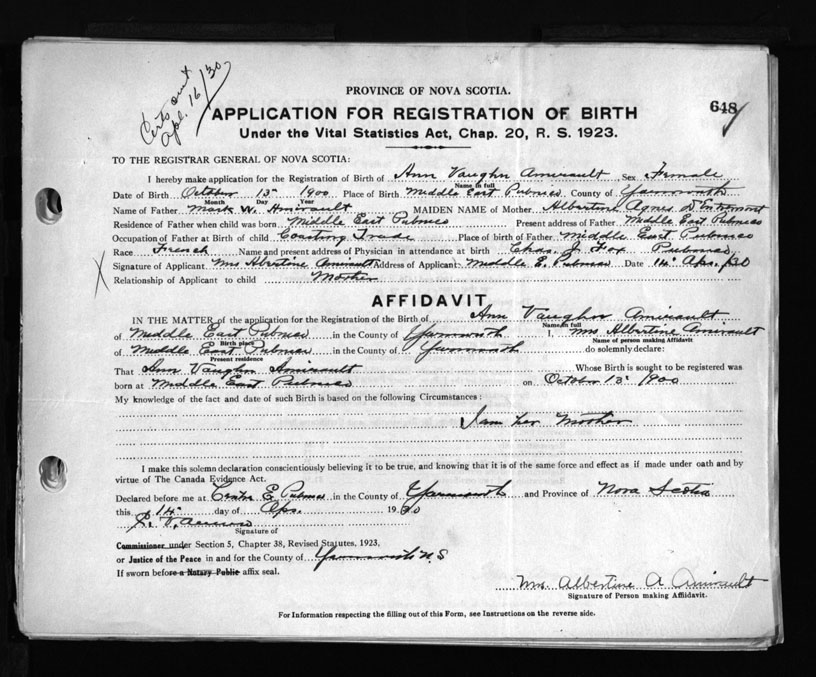 Certs sent
Apl. 16/30
PROVINCE OF NOVA SCOTIA.
648
APPLICATION FOR REGISTRATION OF BIRTH
Under the Vital Statistics Act, Chap. 20, R. S. 1923.
TO THE REGISTRAR GENERAL OF NOVA SCOTIA:
I hereby make application for the Registration of Birth of Ann Vaughn Amirault Sex Female
Name in full
Date of Birth October 13" 1900 Place of Birth Middle East Pubnico County of Yarmouth
Month Day Year
Name of Father Mark W. Amirault MAIDEN NAME of Mother Albertine Agnes D'Entremont
Residence of Father when child was born Middle East Pubnico Present address of Father Middle East Pubnico
Occupation of Father at Birth of child Coasting Trade Place of birth of Father Middle East Pubnico
Race French Name and present address of Physician in attendance at birth Chas. J. Fox Pubnico
Signature of Applicant Mrs Albertine Amirault Address of Applicant Middle E. Pubnico Date 14" Apr. /30
X
Relationship of Applicant to child Mother
AFFIDAVIT
IN THE MATTER of the application for the Registration of the Birth of Ann Vaughn Amirault
Name in full
of Middle East Pubnico in the County of Yarmouth I, Mrs Albertine Amirault
Birth place Name of person making Affidavit
of Middle East Pubnico in the County of Yarmouth do solemnly declare:
Present residence
That Ann Vaughn Amirault Whose Birth is sought to be registered was
born at Middle East Pubnico on October 13" 1900
My knowledge of the fact and date of such Birth is based on the following Circumstances:
I am her Mother
I make this solemn declaration conscientiously believing it to be true, and knowing that it is of the same force and effect as if made under oath and by
virtue of The Canada Evidence Act.
Declared before me at Centre E. Pubnico in the County of Yarmouth and Province of Nova Scotia
this 14" day of Apr. 1930
Signature of
Commissioner under Section 5, Chapter 38, Revised Statutes, 1923,
or Justice of the Peace in and for the County of Yarmouth N.S
If sworn before a Notary Public affix seal.
Mrs Albertine A Amirault
Signature of Person making Affidavit.
For Information respecting the filling out of this Form, see Instructions on the reverse side.